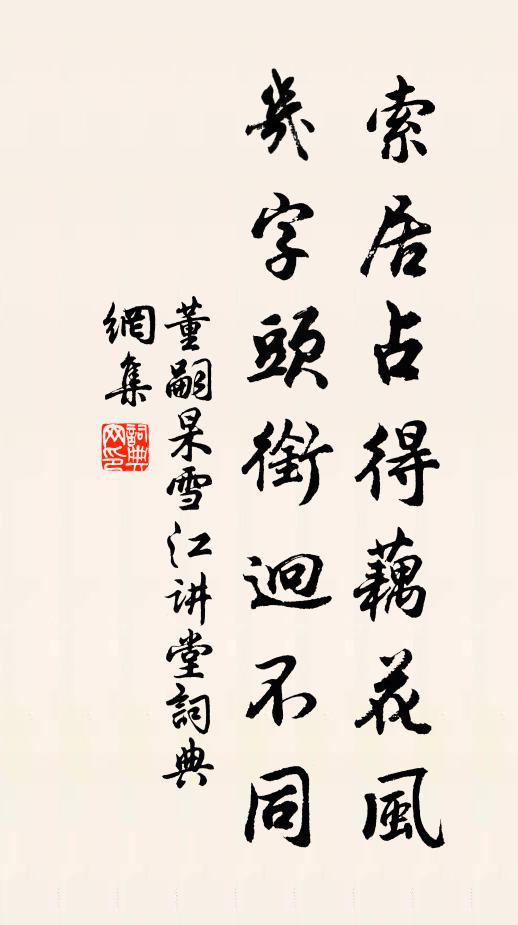 索居占得藕花風
幾字頭銜迥不同
董嗣杲雪江讲堂詞典
網集
詞典
网印